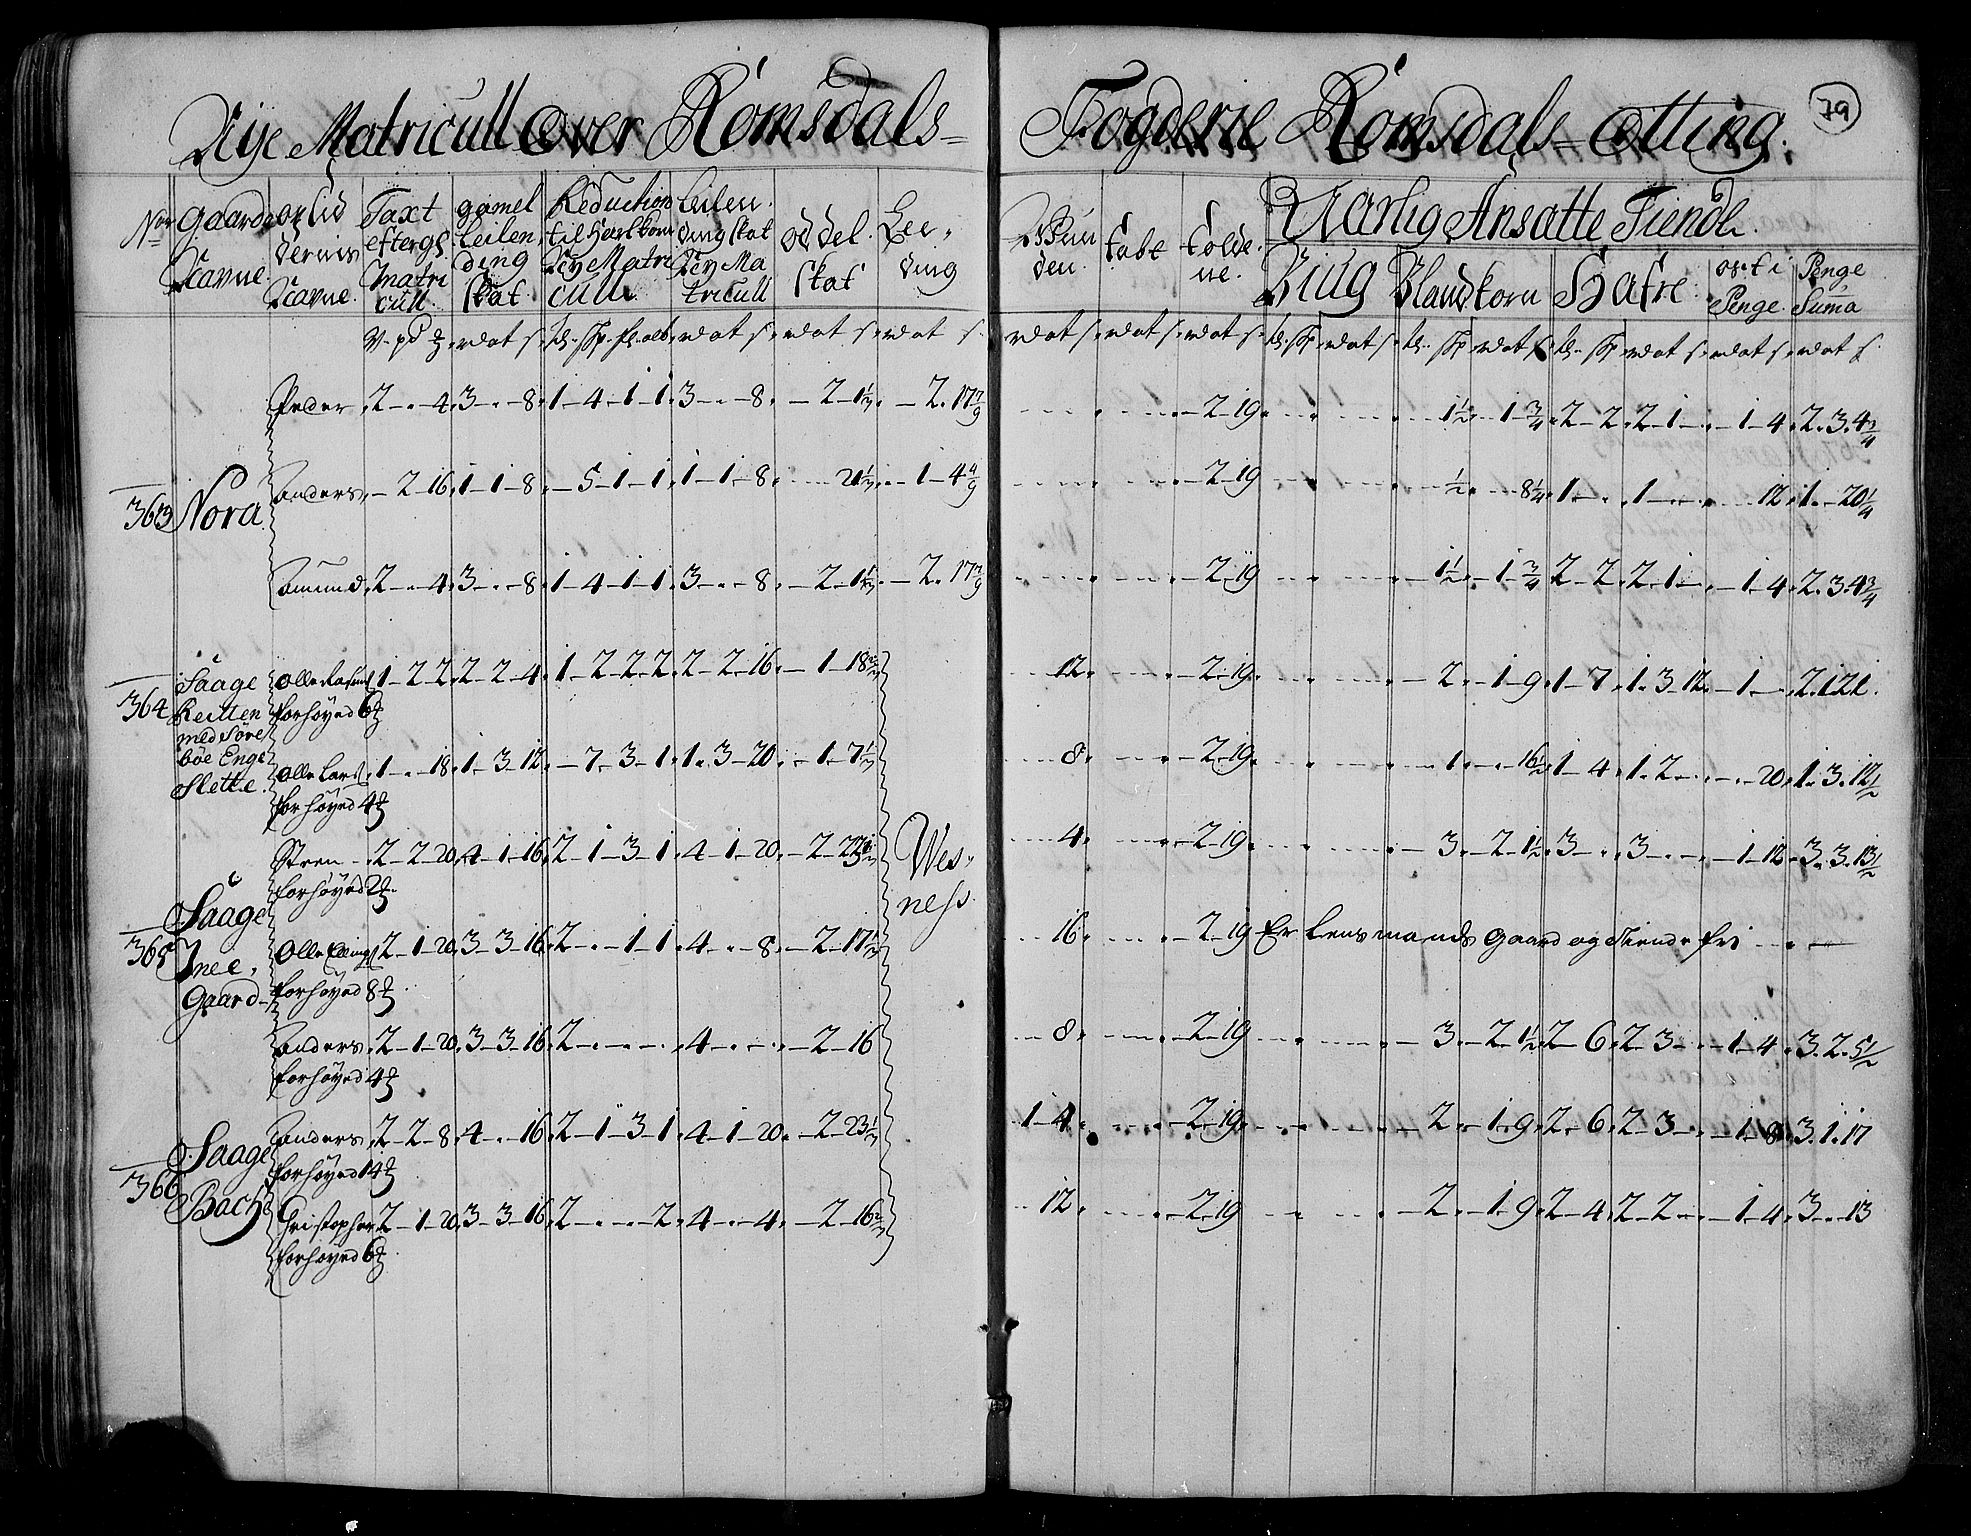 Nye Matricull over Romsdals=
Fogderie Romsdals=otting.
79
Nrr Gaarde Navne.
opsid dernis Navne.
Taxt efter gl Matri cull.
gamel Leilen ding skat
Reduction til Hartkorn Ney Matri cull.
Leilen. ding skat Ney Ma tricull
oddel. skat
Lee, ding
Wiiss den.
tabt
tolde. ne.
Aarlig Ansatte Tiende.
Biug
Blandkorn
Hafre
ost i Penge.
Penge Suma
Peder 2 - 4 3 - 8 1-4-1-1 3 - 8 - 2-1½ - 2-17 7/9
- 2-19 1½ - 1 ¾ 2-2 2-1 - 1-4 2.3.4¾
363 Nora
Anders - 2-16 1-1-8 - 5-1-1 1-1-8 - 1-4 4/9
- 2-19 ½ 8¼ 1 - 1 - 12 1 - 20¼
Amund 2 - 4 3 - 8 1-4-1-1 3 - 8 - 2-1½ - 2-17 7/9
- 2-19 - 1½ - 1-¾ 2-2 2-1 - 1-4 2.3.4¾
364 Saage Reitten med Søre bøe Enge Slette.
Olle Rasmus 1-2-2 2-2-4 1-2-2-2 2-2-16 - 1-18
forhøyed 6
12 - 2-19 - 2 - 1-9 1-7 1.3.12 - 1 - 2.1.21.
Olle Lars 1 - 18 1-3-12 - 7-3-1 1-3-20 - 1-7½
forhøyed 4
8 - 2-19 - 1 - 16½ 1-4 1-2 - 20 1.3.12½
Steen 2-2-20 4-1-16 2-1-3-1 4-1-20 - 2-
forhøyed 2
4 - 2-19 - 3 - 2-1½ 3 - 3 - 1-12 3.3.13½
Wes, ness.
365 Saage Inee, Gaard
Olle Ellings 2-1-20 3-3-16 2 - 1-1 4 - 8 - 2-17
forhøyed 8
16 - 2-19 Er Lensmands Gaard og Tiende fri
Anders 2-1-20 3-3-16 2 - 4 - 2-16
forhøyed 4
8 - 2-19 - 3 - 2-1½ 2-6 2-3 - 1-4 3.2.5½
366 Saage Bach
Anders 2-2-8 4 - 16 2-1-3-1 4-1-20 - 2-23
forhøyed 14
1-4 - 2-19 - 2 - 1-9 2-6 2-3 - 1-8 3.1.17
Christopher 2-1-20 3-3-16 2 - 2 4 - 4 - 2-16
forhøyed 6
12 - 2-19 - 2 - 1-9 2-4 2-2 - 1-4 3 - 13